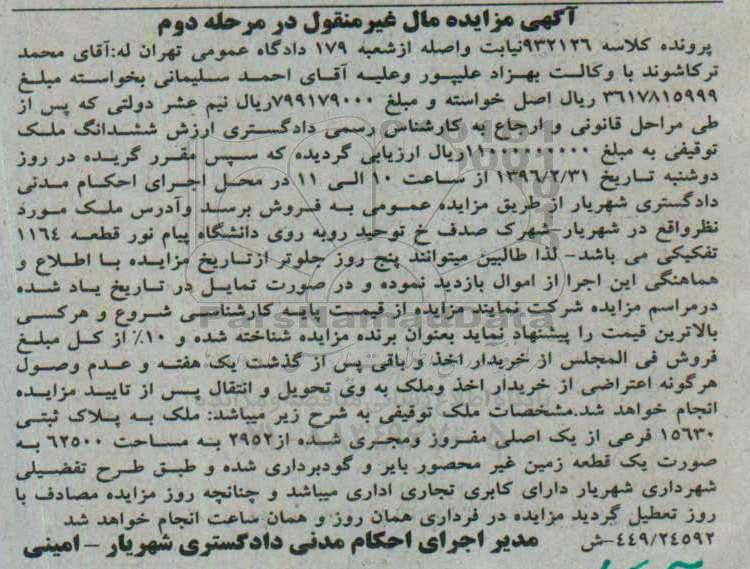 آگهی مزایده مال غیرمنقول در مرحله دوم
پرونده کلاسه ۹۳۲۱۲۶نیابت واصله ازشعبه ۱۷۹ دادگاه عمومی تهران له:آقای محمد
ترکاشوند با وکالت بهزاد علیپور وعلیه آقای احمد سلیمانی بخواسته مبلغ
۳۶۱۷۸۱۵۹۹۹ ریال اصل خواسته و مبلغ ۷۹۹۱۷۹۰۰۰ریال نیم عشر دولتی که پس از
طی مراحل قانونی و ارجاع به کارشناس رسمی دادگستری ارزش ششدانگ ملک
توقیفی به مبلغ ۱۱۰۰۰۰۰۰۰۰۰۰ریال ارزیابی گردیده که سپس مقرر گریده در روز
دوشنبه تاریخ ۱۳۹۶/۲/۳۱ از ساعت ۱۰ الی ۱۱ در محل اجرای احکام مدنی
دادگستری شهریار از طریق مزایده عمومی به فروش برسد وآدرس ملک مورد
نظرواقع در شهریار-شهرک صدف خ توحید روبه روی دانشگاه پیام نور قطعه ۱۱۶۴
تفکیکی می باشد- لذا طالبین میتوانند پنج روز جلوتر ازتاریخ مزایده با اطلاع و
هماهنگی این اجرا از اموال بازدید نموده و در صورت تمایل در تاریخ یاد شده
درمراسم مزایده شرکت نمایند مزایده از قیمت پایه کارشناسی شروع و هرکسی
بالاترین قیمت را پیشنهاد نماید بعنوان برنده مزایده شناخته شده و ۱۰٪ از کل مبلغ
فروش فی المجلس از خریدار اخذ و باقی پس از گذشت یک هفته و عدم وصول
هرگونه اعتراضی از خریدار اخذ وملک به وی تحویل و انتقال پس از تایید مزایده
انجام خواهد شد.مشخصات ملک توقیفی به شرح زیر میباشد: ملک به پلاک ثبتی
۱۵۶۳۰ فرعی از یک اصلی مفروز ومجری شده از۲۹۵۲ به مساحت ۶۲۵۰۰ به
صورت یک قطعه زمین غیر محصور بایر و گودبرداری شده و طبق طرح تفضیلی
شهرداری شهریار دارای کابری تجاری اداری میباشد و چنانچه روز مزایده مصادف با
روز تعطیل گردید مزایده در فرداری همان روز و همان ساعت انجام خواهد شد
۴۴۹/۲۴۵۹۲-ش مدیر اجرای احکام مدنی دادگستری شهریار - امینی
ParsNamadData